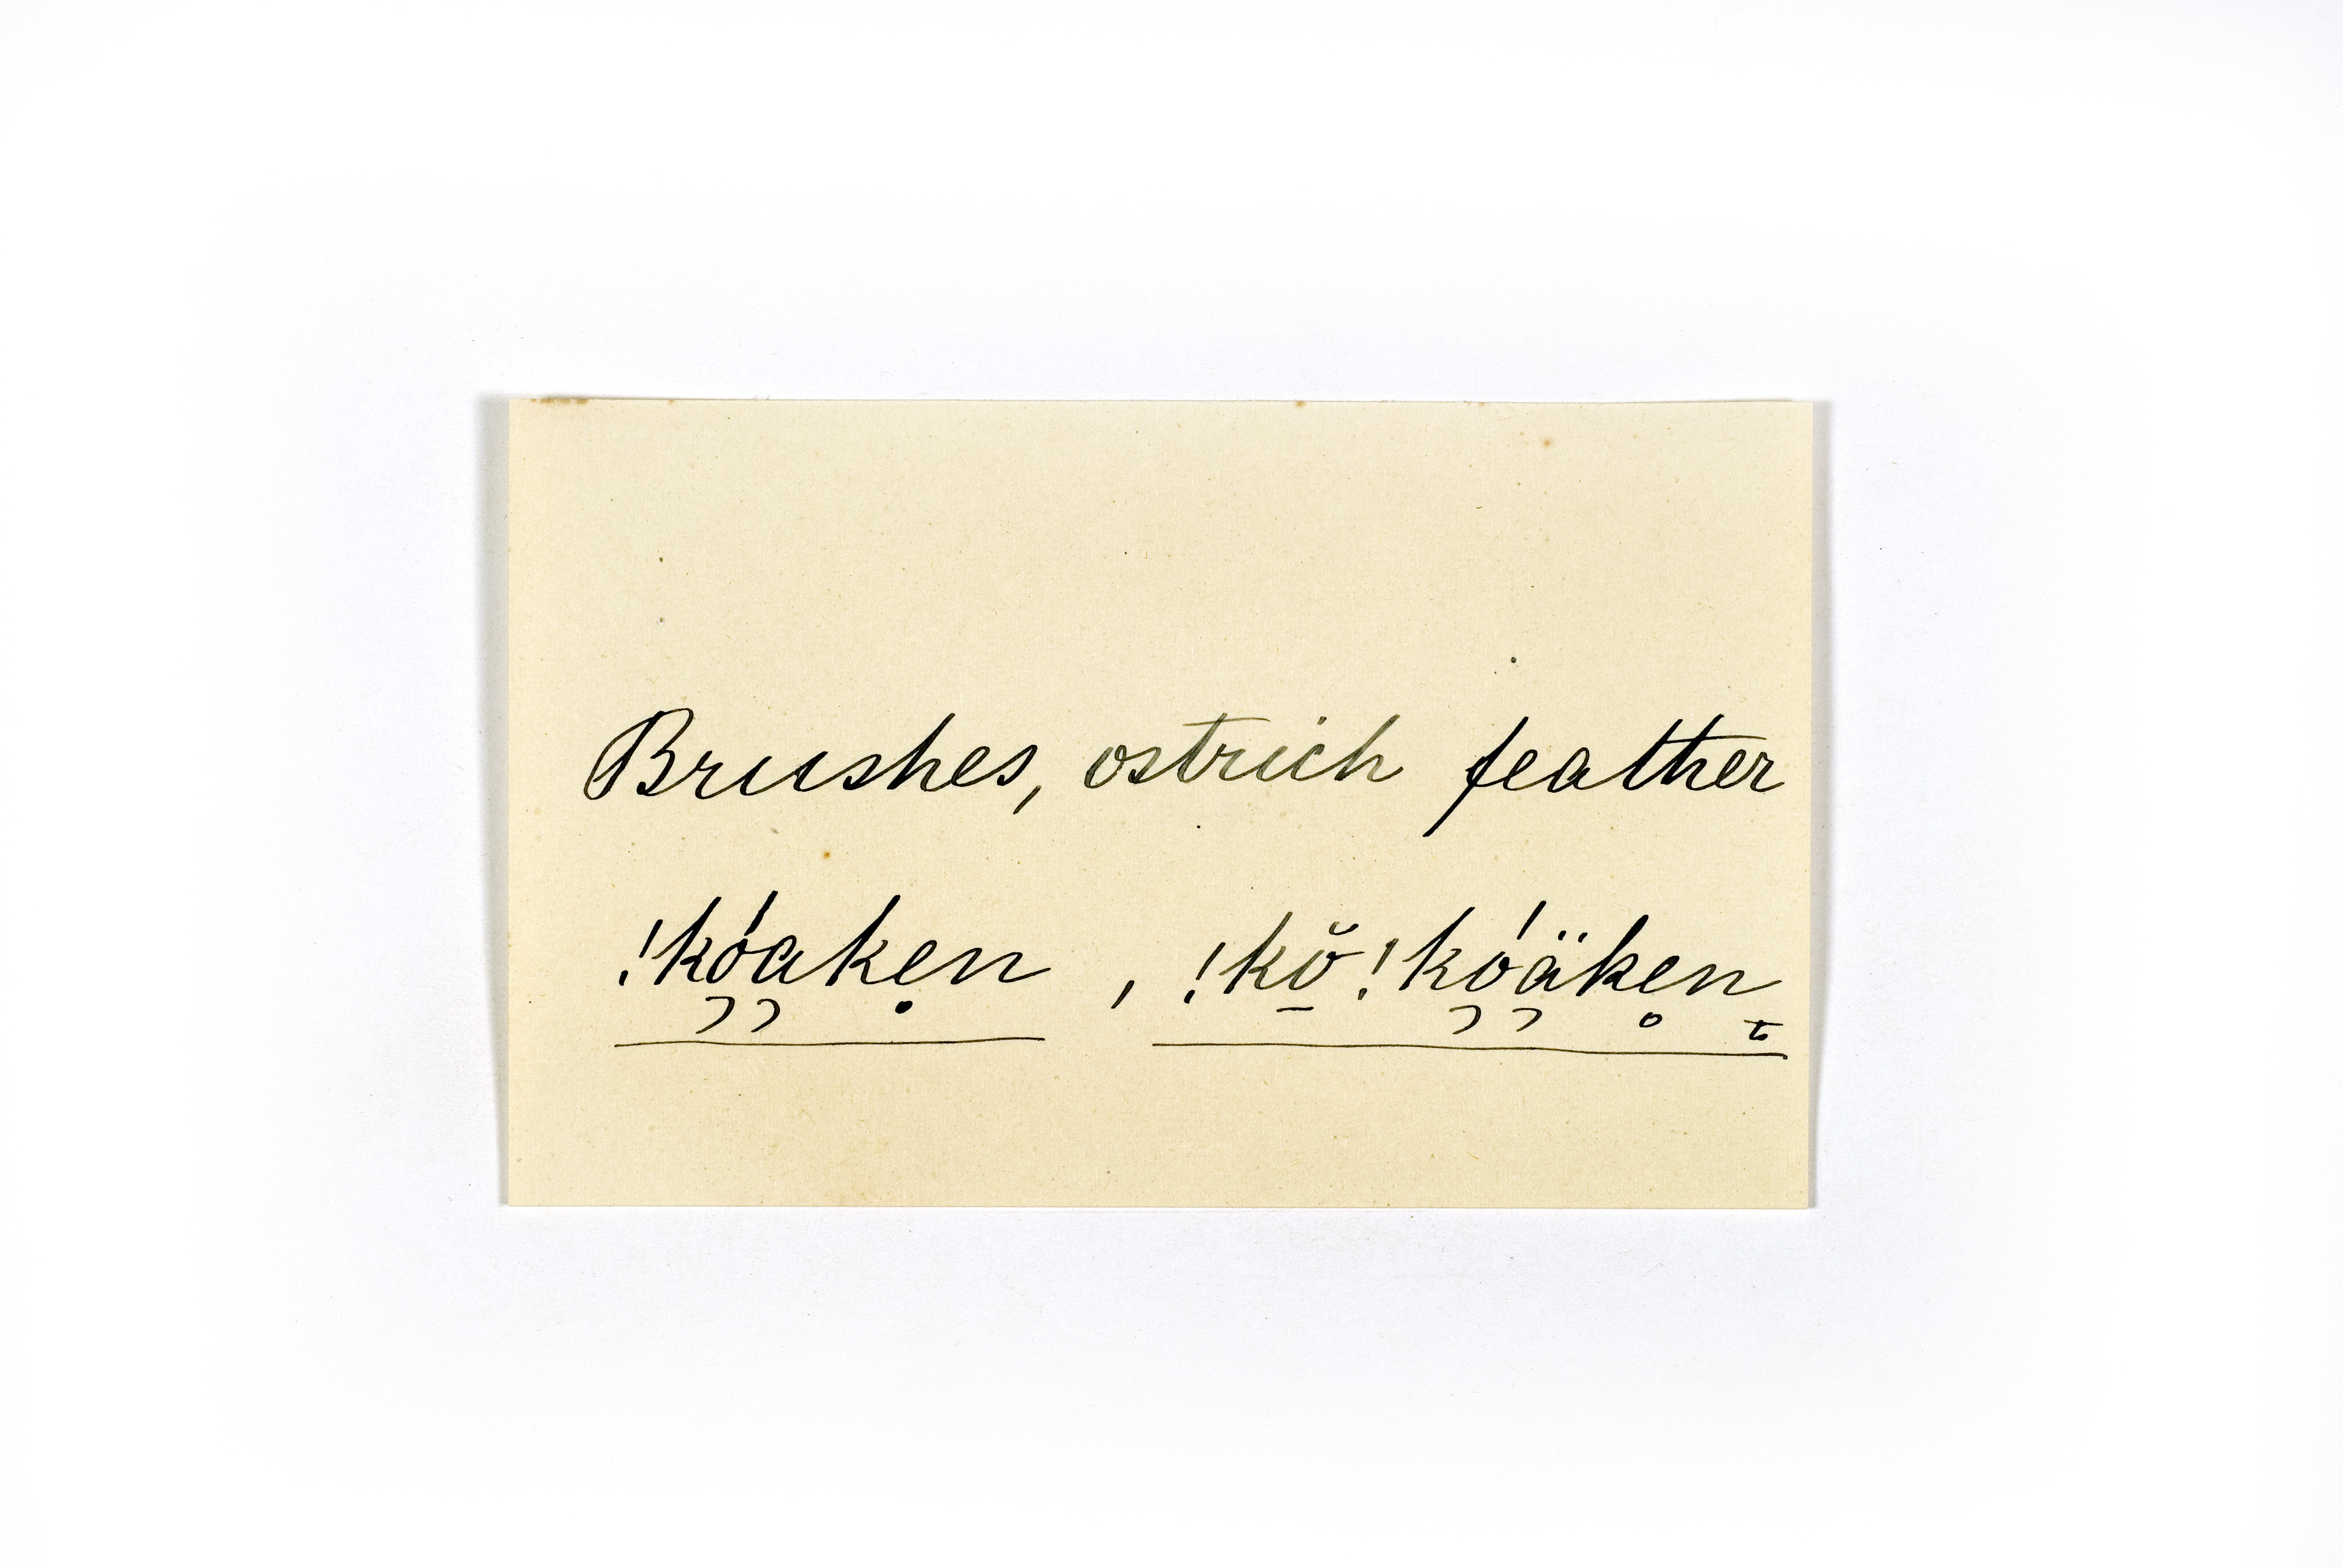 Brushes, ostrich feather
!kó̹a̹kẹn , !kṓ̠̆!kó̹ä̹ke̥ñ̠